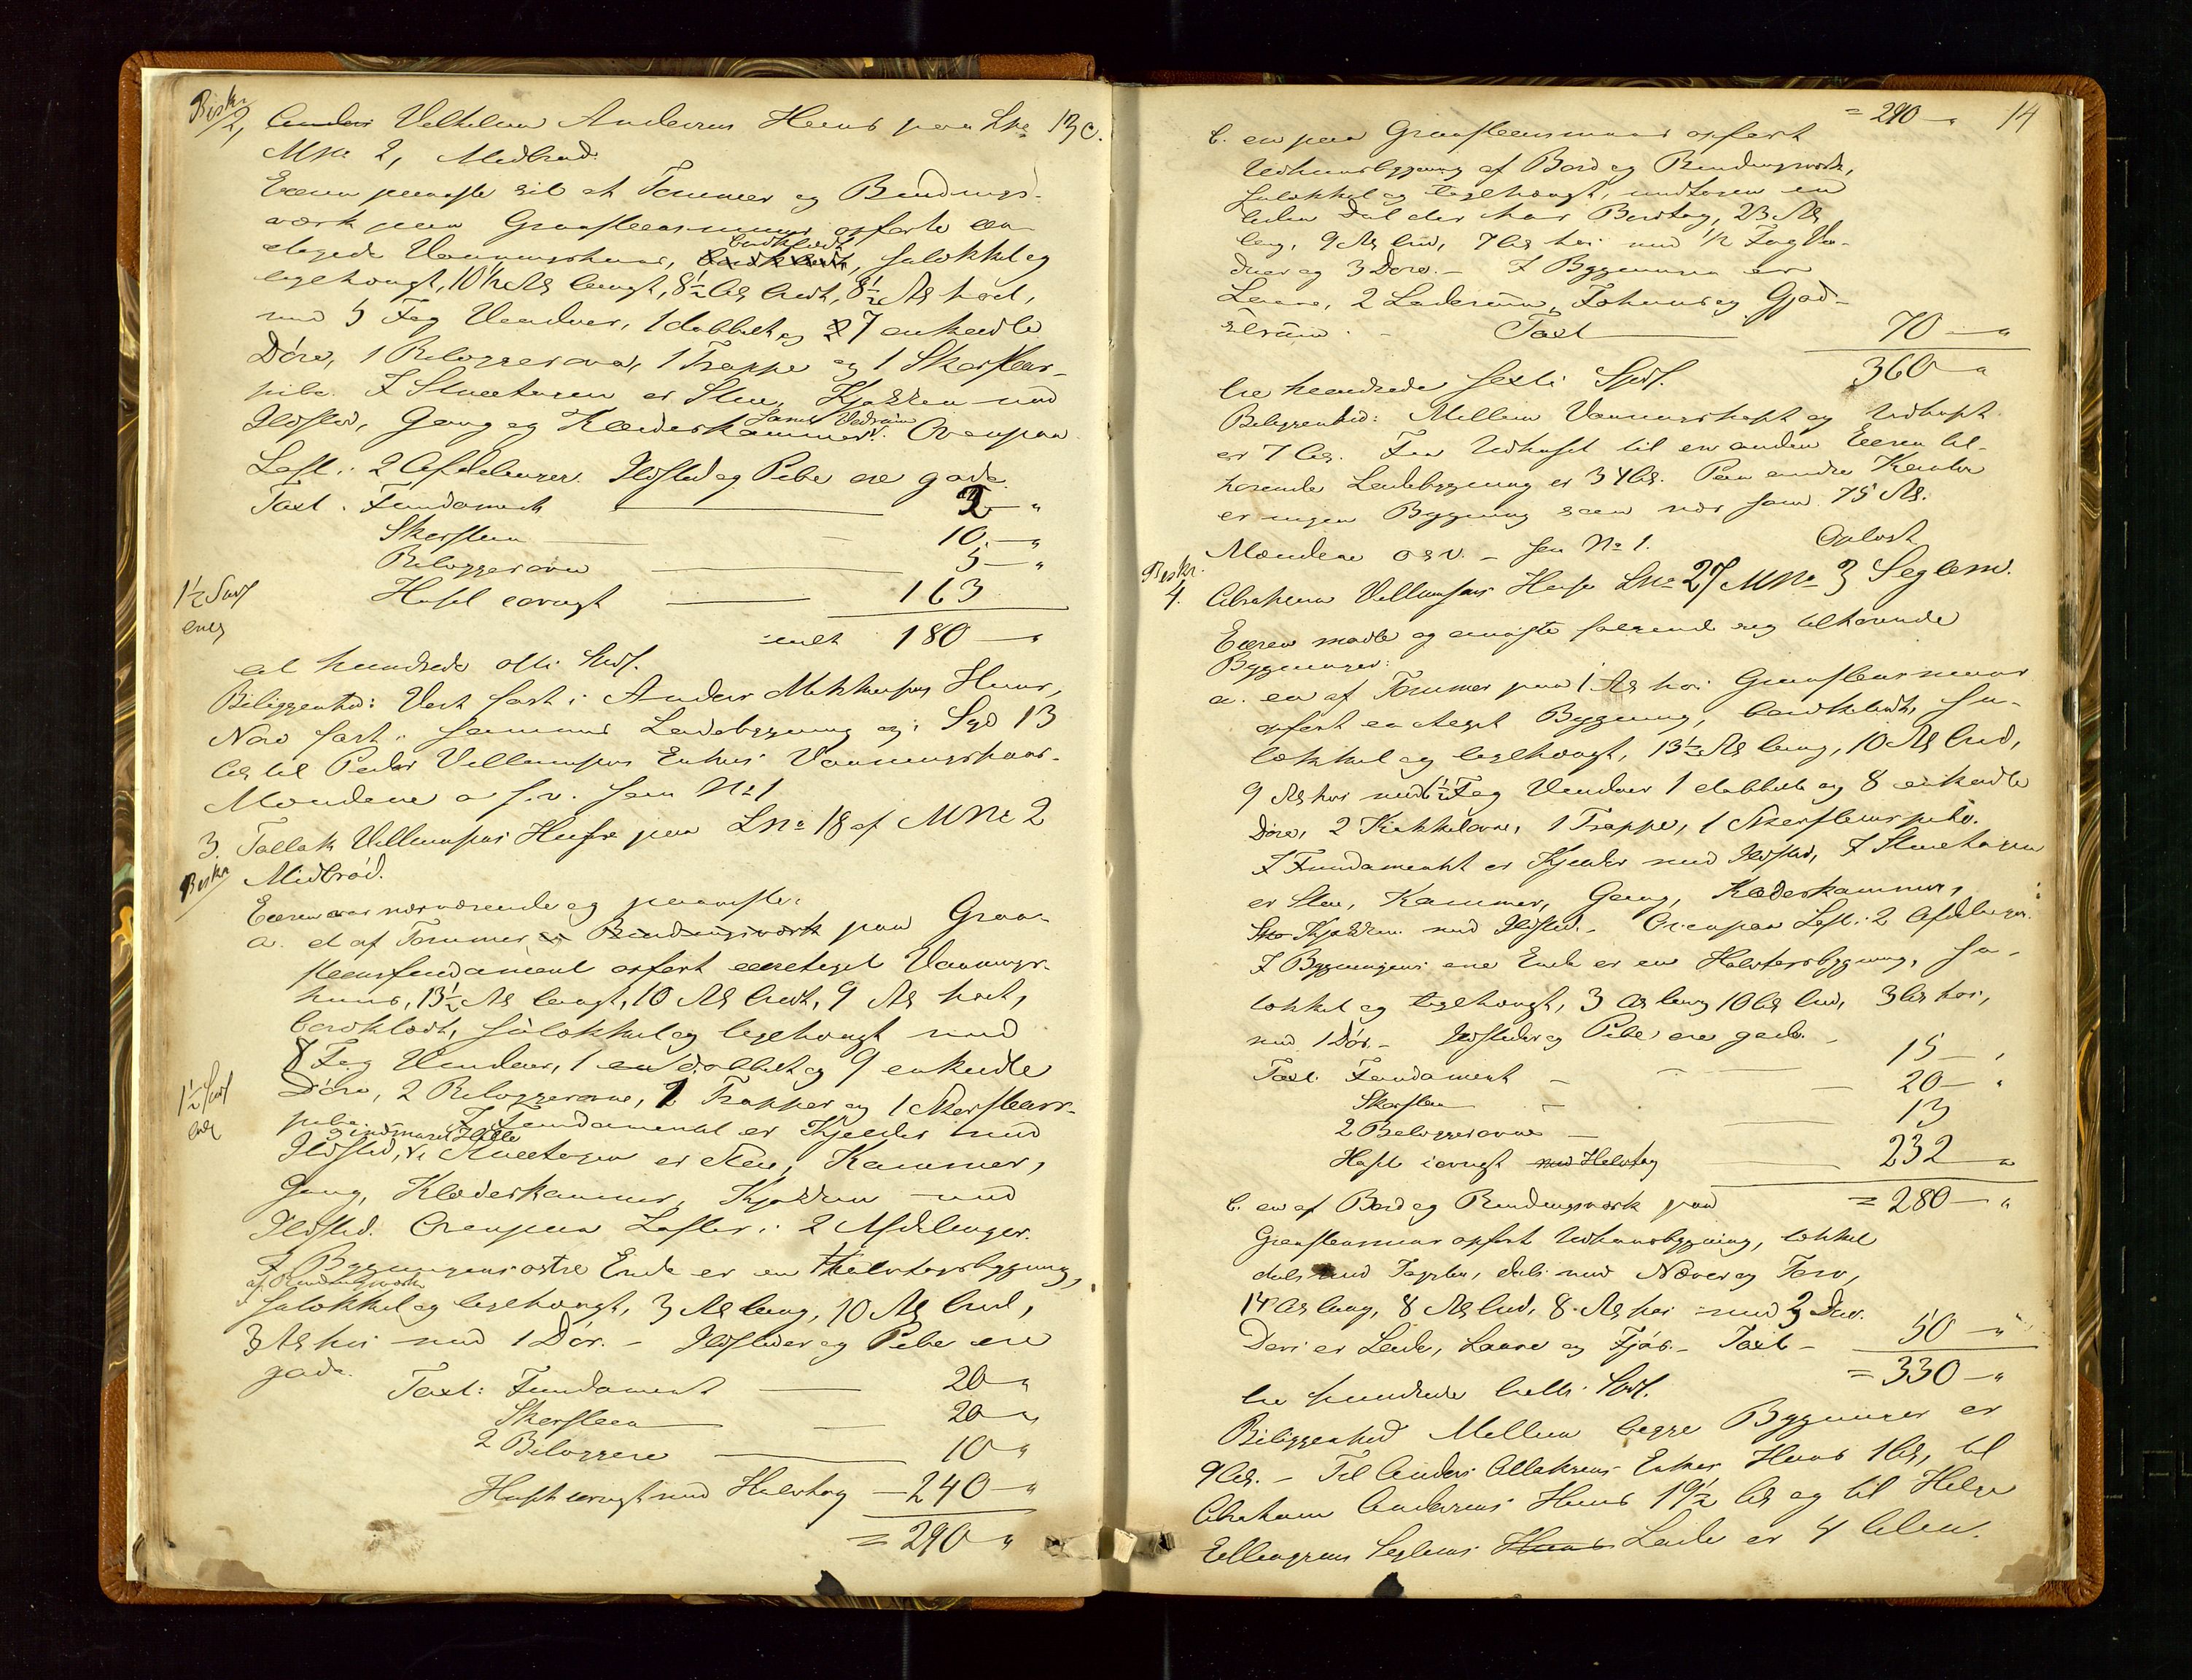 Beskr
2, Anders Vilhelm Andersens Huus paa Lno 13c.
MNo 2, Midbrød.
Eieren paaviste sit af Tømmer og Bindings-
værk paa Graasteensmuur opførte een-
etages Vaaningshuus, bordklædt, sulokket og
teglhængt, 10½ Al langt, 8½ Al bredt, 8½ Al høit,
med 5 Fag Vinduer, 1 dobbelt og 7 enkelte
Døre, 1 Bilæggerovn, 1 Trappe og 1 Skorsteens-
pibe. I Stueetagen er Stue, Kjøkken med
Ildsted, Gang og Klædeskammer samt Vedrum. Ovenpaa
Loft i 2 Afdelinger. Ildsted og Pibe ere gode.
Taxt. Fundament 2 "
Skorsteen 10 "
Bilæggerovn 5 "
1½ Skill
enes
Huset øvrigt 163
ialt 180 "
et hundrede otti Spdl.
Beliggenhed: Vest fast i Anders Mikkelsens Huus,
Nord fast i samme Ladebygning og i Syd 13
Al til Peder Villumsens Enkes Vaaningshuus.
Mændene o. s. v. som No 1
3. Tallak Villumsens Huse paa LNo 18 af MNo 2
Beskr
Midbrød.
Eieren var nærværende og paaviste:
a. et af Tømmer og Bindingsværk paa Graa-
steensfundament opført eenetages Vaanings-
huus, 13½ Al langt, 10 Al bredt, 9 Al høit,
bordklædt, sulokket og teglhængt med
8 Fag Vinduer, 1 dobbelt og 9 enkelte
1½ Skill
enes
Døre, 2 Bilæggerovne, 2 Trapper og 1 Skorsteens-
pibe. I Fundamentet er Kjelder med
Ildsted, i Stueetagen er Stue, Kammer,
Gang, Klædeskammer, Kjøkken med
Ildsted. Ovenpaa Lofter i 2 Afdelinger.
I Bygningens østre Ende er en Halvtagsbygning,
af Bindingsværk
sulokket og teglhængt, 3 Al lang, 10 Al bred,
3 Al høi med 1 Dør. - Ildsteder og Pibe ere
gode.
Taxt: Fundament 20 "
Skorsteen 20 "
2 Bilæggere 10 "
Huset øvrigt med Halvtag 240 "
= 290 "
= 290 " 14
b. en paa Graasteensmuur opført
Udhuusbygning af Bord og Bindingsværk,
sulokket og teglhængt, undtagen en
liden Del der har Bordtag, 23 Al
lang, 9 Al bred, 7 Al høi med ½ Fag Vin-
duer og 3 Døre. - I Bygningen er
Laave, 2 Laderum, Fæhuus og Gjød-
selrum. - Taxt 70 "
360 "
tre hundrede sexti Spdl.
Beliggenhed: Mellem Vaaningshuset og Udhuset
er 7 Al. Fra Udhuset til en anden Eieren til-
hørende Ladebygning er 34 Al. Paa andre Kanter
er ingen Bygning saa nær som 75 Al.
Mændene o s v. - som No 1. Oplæst
Beskr.
4. Abraham Villumsens Huse LNo 27 MNo 3 Seglem.
Eieren mødte og anviste følgende sig tilhørende
Bygninger:
a. en af Tømmer paa 1 Al høi Graasteensmuur
opført eenetages Bygning, bordklædt, su-
lokket og teglhængt, 13½ Al lang, 10 Al bred,
9 Al høi med 6½ Fag Vinduer 1 dobbelt og 8 enkelte
Døre, 2 Kakkelovne, 1 Trappe, 1 Skorsteenspibe.
I Fundamentet er Kjelder med Ildsted, I Stueetagen
er Stue, Kammer, Gang, Klædeskammer,
Kjøkken med Ildsted. - Ovenpaa Loft i 2 Afdelinger.
I Bygningens ene Ende er en Halvtagsbygning, su-
lokket og teglhængt, 3 Al lang 10 Al bred, 3 Al høi,
med 1 Dør. - Ildsteder og Pibe ere gode. -
Taxt. Fundament 15 "
Skorsteen 20 "
2 Bilæggerovne 13
Huset iøvrigt med Halvtag 232 "
= 280 "
b. en af Bord og Bindingsværk paa
Graasteensmuur opført Udhuusbygning, tækket
dels med Tagsten, dels med Næver og Torv,
14 Al lang, 8 Al bred, 8 Al høi med 3 Døre.
Deri er Lade, Laave og Fjøs. - Taxt - 50 "
= 330 "
tre hundrede tretti Spdl.
Beliggenhed Mellem begge Bygninger er
9 Al. - Til Anders Allaksens Enkes Huus 1 Al, til
Abraham Andersens Huus 19½ Al og til Helge
Ellingsens Seglems Huus Lade er 4 Alen.